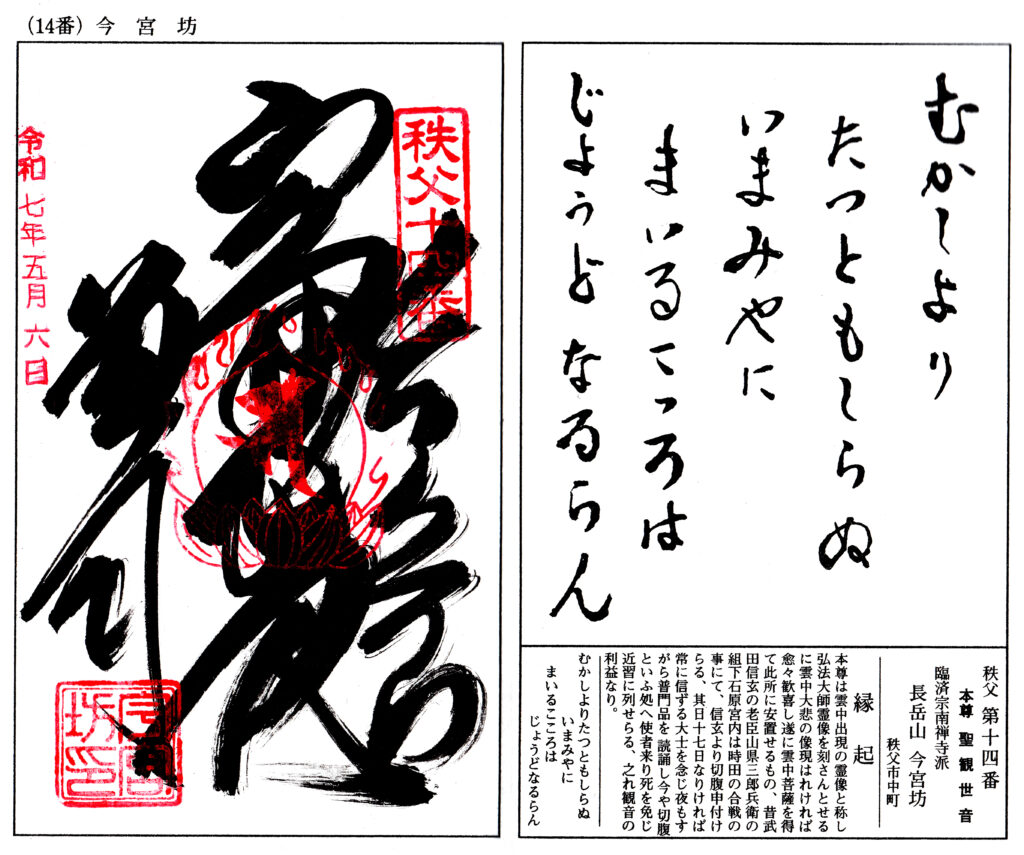 （14番）今宮坊
むかしより
たつともしらぬ
いまみやに
まいるこころは
じょうどなるらん
秩父 第十四番
本尊 聖観世音
臨済宗南禅寺派
長岳山 今宮坊
秩父市中町
縁起
本尊は雲中出現の霊像と称し
弘法大師霊像を刻さんとせる
に雲中大悲の像現はれければ
愈々歓喜し遂に雲中菩薩を得
て此所に安置せるもの、昔武
田信玄の老臣山県三郎兵衛の
組下石原宮内は時田の合戦の
事にて、信玄より切腹申付け
らる、其日十七日なりければ
常に信ずる大士を念じ夜もす
がら普門品を 読誦し今や切腹
といふ処へ使者来り死を免じ
近習に列せらる、之れ観音の
利益なり。
むかしよりたつともしらぬ
いまみやに
まいるこころは
じょうどなるらん
秩父十四番
令和七年五月六日
今宮
坊印